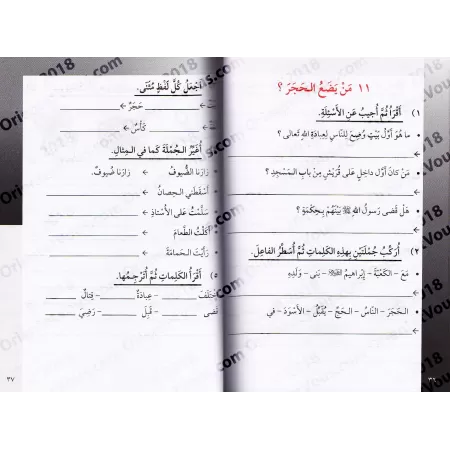 ١١ مَنْ يَضَعُ الـحَجَرَ ؟
١) أَقْرَأُ ثُمَّ أُجيبُ عَنِ الأَسْئِلَةِ.
ما هُوَ أَوَّلُ بَيْتٍ وُضِعَ لِلنّاسِ لِعِبادَةِ اللهِ تَعالى ؟
مَنْ كانَ أَوَّلَ داخِلٍ عَلى قُرَيْشٍ مِنْ بابِ الـمَسْجِدِ ؟
هَلْ قَضى رَسولُ اللهِ ﷺ بَيْنَهُمْ بِحِكْمَةٍ ؟
٢) أُرَكِّبُ جُمْلَتَيْنِ بِهذِهِ الكَلِماتِ ثُمَّ أُسَطِّرُ الفاعِلَ.
مَعَ – الكَعْبَةَ – إِبْراهيمُ – بَنى – وَلَدِهِ
الـحَجَرَ – النّاسُ – الـحَجِّ – يُقَبِّلُ – الأَسْوَدَ – في
أَجْعَلُ كُلَّ لَفْظٍ مُثَنّى.
حَجَرٌ ←
كَأْسٌ ←
أُغَيِّرُ الـجُمْلَةَ كَما في الـمِثالِ.
زارَنا الضُّيوفُ ← زارَنا ضُيوفٌ.
أَسْقَطَني الـحِصانُ ←
سَلَّمْتُ عَلى الأُسْتاذِ ←
أَكَلْتُ الطَّعامَ ←
رَأَيْتُ الـحَمامَةَ ←
٥) أَقْرَأُ الكَلِماتِ ثُمَّ أُتَرْجِمُها.
اِخْتَلَفَ – عِبادَةٌ – قِتالٌ
قَضى – قَبِلَ – رَضِيَ
٣٧